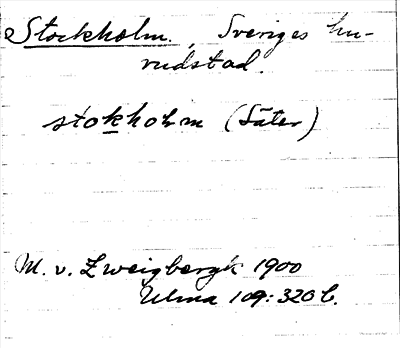 Stockholm., Sveriges hu-
vudstad.
stokholm (Säter)
M. v. Zweigbergk 1900
Ulma 109:320 b.